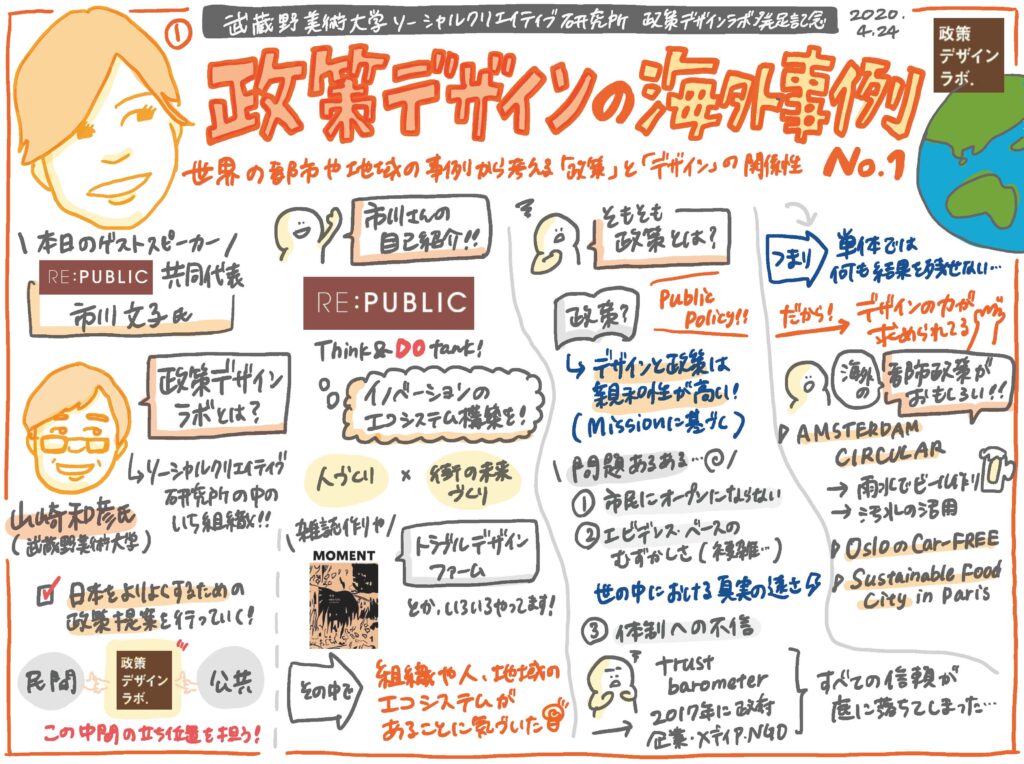 ①
武蔵野美術大学ソーシャルクリエイティブ研究所 政策デザインラボ発足記念
2020.
4.24
政策
デザイン
ラボ.
政策デザインの海外事例
世界の都市や地域の事例から考える「政策」と「デザイン」の関係性 No.1
\ 本日のゲストスピーカー /
RE:PUBLIC 共同代表
市川文子氏
政策デザイン
ラボとは?
山崎和彦氏
(武蔵野美術大学)
ソーシャルクリエイティブ
研究所の中の
いち組織!!
日本をよりよくするための
政策提案を行っていく!
民間
政策
デザイン
ラボ.
公共
この中間の立ち位置を担う!
市川さんの
自己紹介!!
RE:PUBLIC
Think & DO tank!
イノベーションの
エコシステム構築を!
人づくり × 街の未来
づくり
\ 雑誌作りや /
MOMENT
トラブルデザイン
ファーム
とか、いろいろやってます!
その中で
組織や人、地域の
エコシステムが
あることに気づいた
そもそも
政策とは?
政策?
Public
Policy!!
↳ デザインと政策は
親和性が高い!
(Missionに基づく)
\ 問題あるある… /
① 市民にオープンにならない
② エビデンス・ベースの
むずかしさ(複雑…)
世の中における真実の速さ
③ 体制への不信
trust
barometer
→ 2017年に政府
企業・メディア・NGO
すべての信頼が
底に落ちてしまった…
つまり
単体では
何も結果を残せない…
だから! → デザインの力が
求められてる
海外の
都市政策が
おもしろい!!
AMSTERDAM
CIRCULAR
→ 雨水でビール作り
→ 汚水の活用
OsloのCar-FREE
Sustainable Food
City in Paris